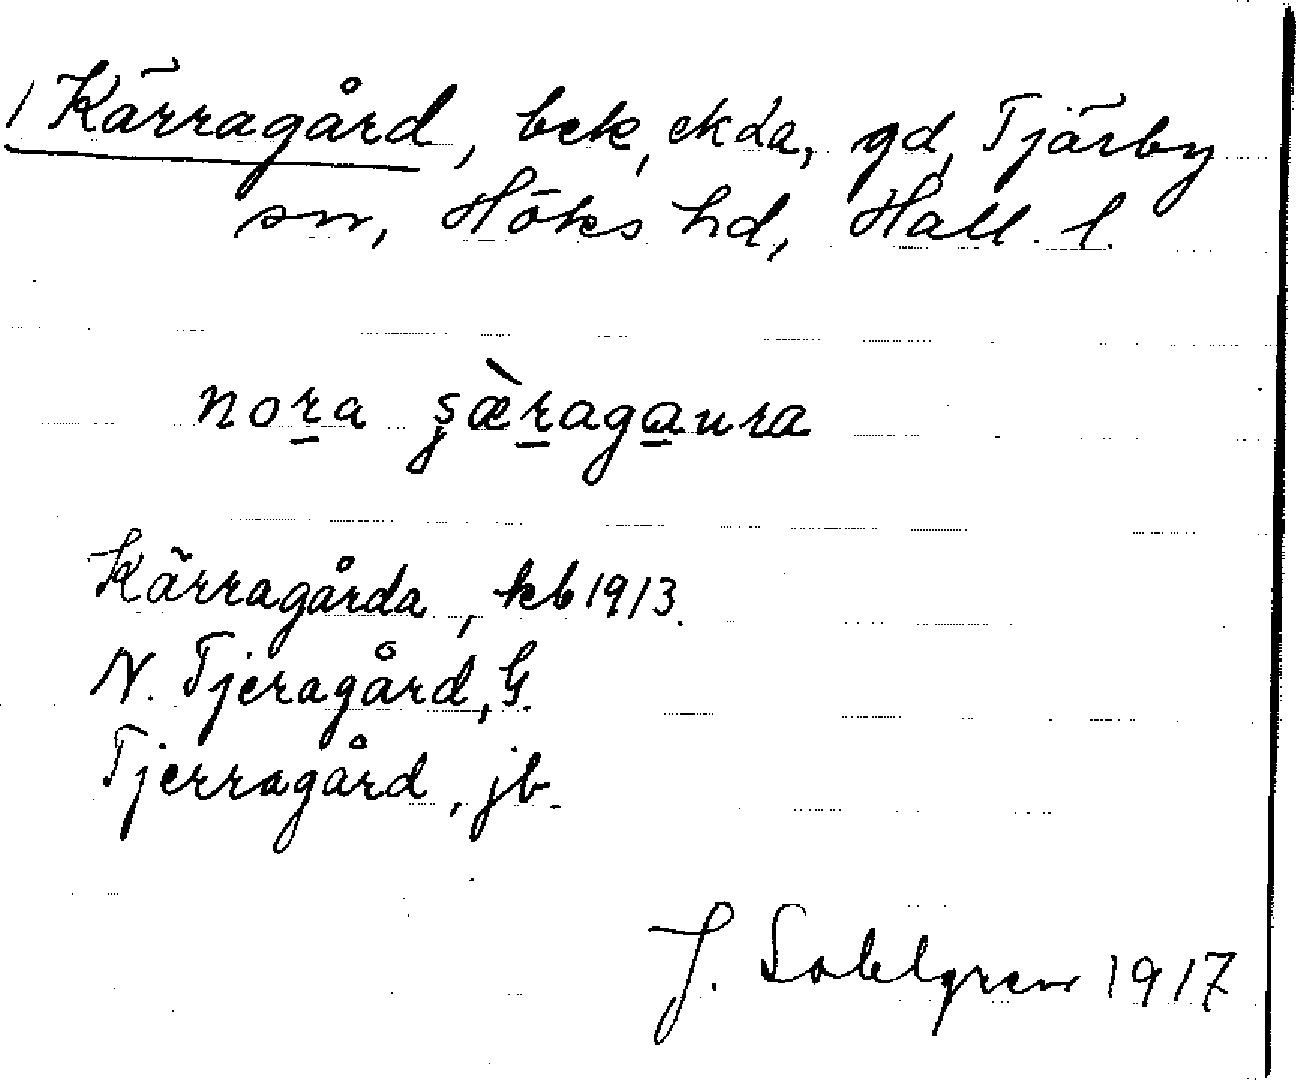 / Kärragård, bek, ekda, gd, Tjärby
sn, Höks hd, Hall. l.
nora şæ̀ragaura
Kärragårda, kb 1913.
N. Tjeragård, G.
Tjerragård, jb.
J. Sahlgren 1917